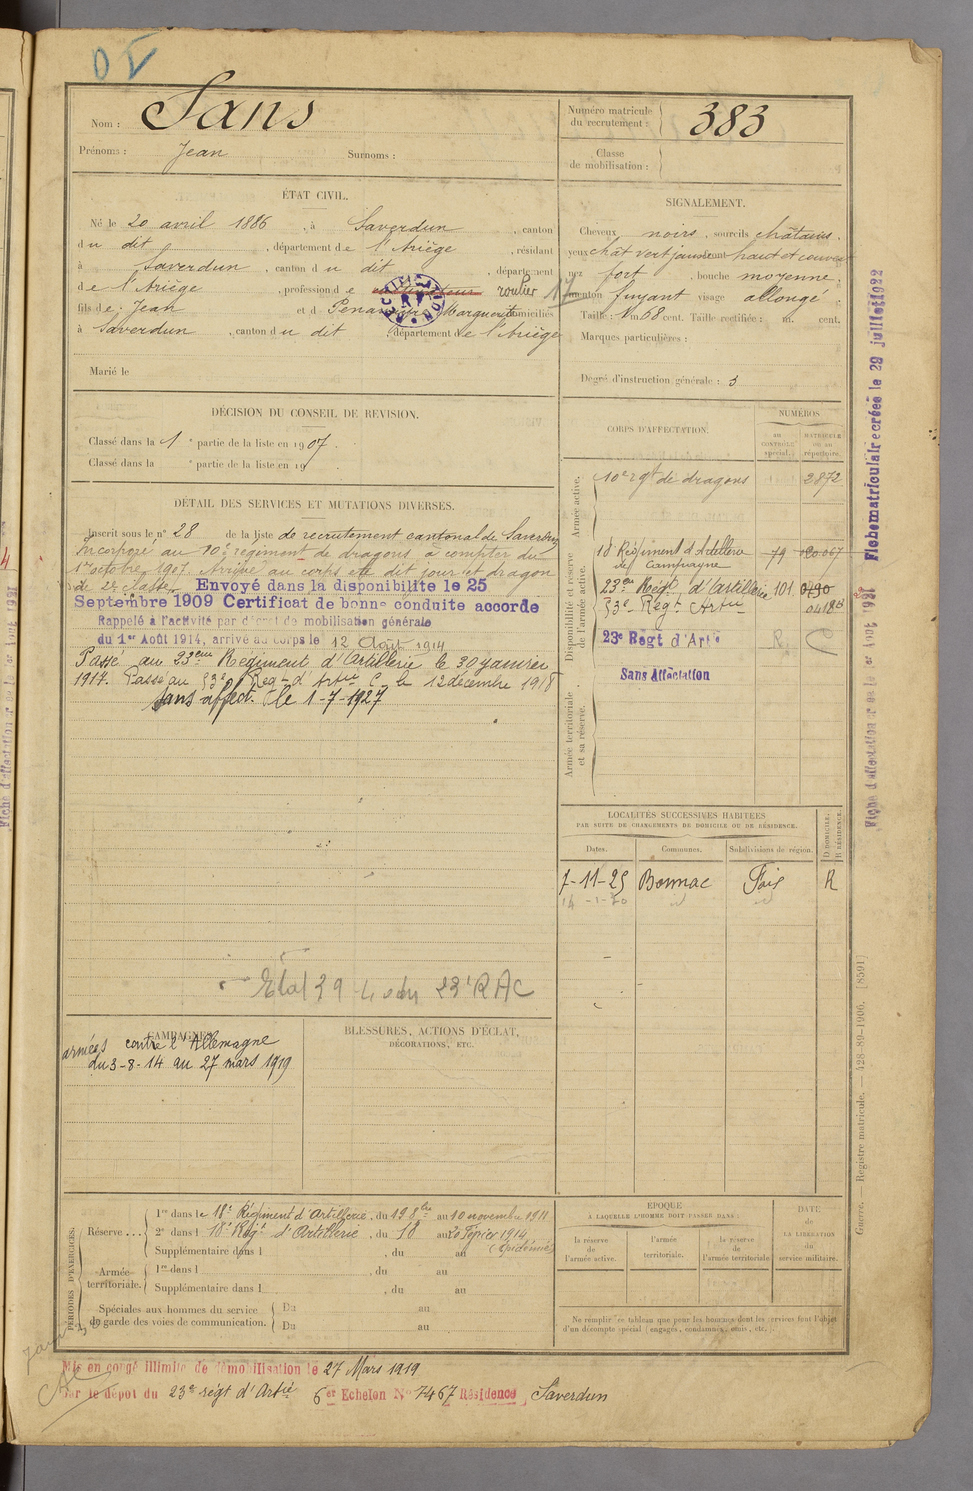 Nom : Sans
Prénoms : Jean Surnoms :
Numéro matricule du recrutement : 383
Classe de mobilisation :
ÉTAT CIVIL.
Né le 20 avril 1886, à Saverdun, canton
du dit, département de l'Ariège, résidant
à Saverdun, canton du dit, département
de l'Ariège, profession de roulier
fils de Jean et d Marguerite domiciliés
à Saverdun, canton du dit, département de l'Ariège
Marié le
RECTIFICATION
SIGNALEMENT.
Cheveux noirs, sourcils châtains,
yeux chât vert jaune front haut et couvert
nez fort, bouche moyenne,
menton fuyant visage allongé
Taille : 1 m. 68 cent. Taille rectifiée : m. cent.
Marques particulières :
Degré d'instruction générale : 3
DÉCISION DU CONSEIL DE REVISION.
Classé dans la 1e partie de la liste en 1907.
Classé dans la e partie de la liste en 19
DÉTAIL DES SERVICES ET MUTATIONS DIVERSES.
Inscrit sous le n° 28 de la liste de recrutement cantonal de Saverdun
Incorporé au 10e régiment de dragons à compter du
1er octobre 1907. Arrivé au corps et dit jour et dragon
de 2e classe. Envoyé dans la disponibilité le 25
Septembre 1909 Certificat de bonne conduite accordé
Rappelé à l'activité par décret de mobilisation générale
du 1er Août 1914, arrivé au corps le 12 Août 1914
Passé au 23ème Régiment d'Artillerie le 30 janvier
1917. Passé au 53e Regt d'Artie C. le 12 décembre 1918
sans affect. le 1-7-1927
23e RAC
CORPS D'AFFECTATION.
NUMÉROS
AU CONTRÔLE spécial.
MATRICULE ou au répertoire.
Armée active.
10e rgt de dragons 2872
Disponibilité et réserve de l'armée active.
18 Régiment d'Artillerie de Campagne 79
23ème Régt d'Artillerie 101 0490
53e Regt Artie 0418
23e Régt d'Artie
Sans Affectation
Armée territoriale et sa réserve.
LOCALITÉS SUCCESSIVES HABITÉES
PAR SUITE DE CHANGEMENTS DE DOMICILE OU DE RÉSIDENCE.
Dates. Communes. Subdivisions de région. D. DOMICILE : R. RÉSIDENCE.
7-11-25 Bonnac Foix R
id id
CAMPAGNES
contre l'Allemagne
du 3-8-14 au 27 mars 1919
BLESSURES, ACTIONS D'ÉCLAT,
DÉCORATIONS, ETC.
PÉRIODES D'EXERCICES.
Réserve...
1re dans le 18e Régiment d'Artillerie, du 19 8bre au 10 novembre 1911
2e dans l 18e Régt d'Artillerie, du 18 au 20 Février 1914
Supplémentaire dans l , du au (Epidémie)
Armée territoriale.
1re dans l , du au
Supplémentaire dans l , du au
Spéciales aux hommes du service de garde des voies de communication.
Du au
Du au
EPOQUE
À LAQUELLE L'HOMME DOIT PASSER DANS :
la réserve de l'armée active.
l'armée territoriale.
la réserve de l'armée territoriale
DATE DE LA LIBÉRATION du service militaire.
Ne remplir ce tableau que pour les hommes dont les services font l'objet
d'un décompte spécial (engagés, condamnés, omis, etc.).
Mis en congé illimité de démobilisation le 27 Mars 1919
Par le dépôt du 23e régt d'Artie 6er Echelon N° 7467 Résidence Saverdun
Fiche matriculaire créée le 29 juillet 1922
Guerre. — Registre matricule. — 428-89-1906. [8591]